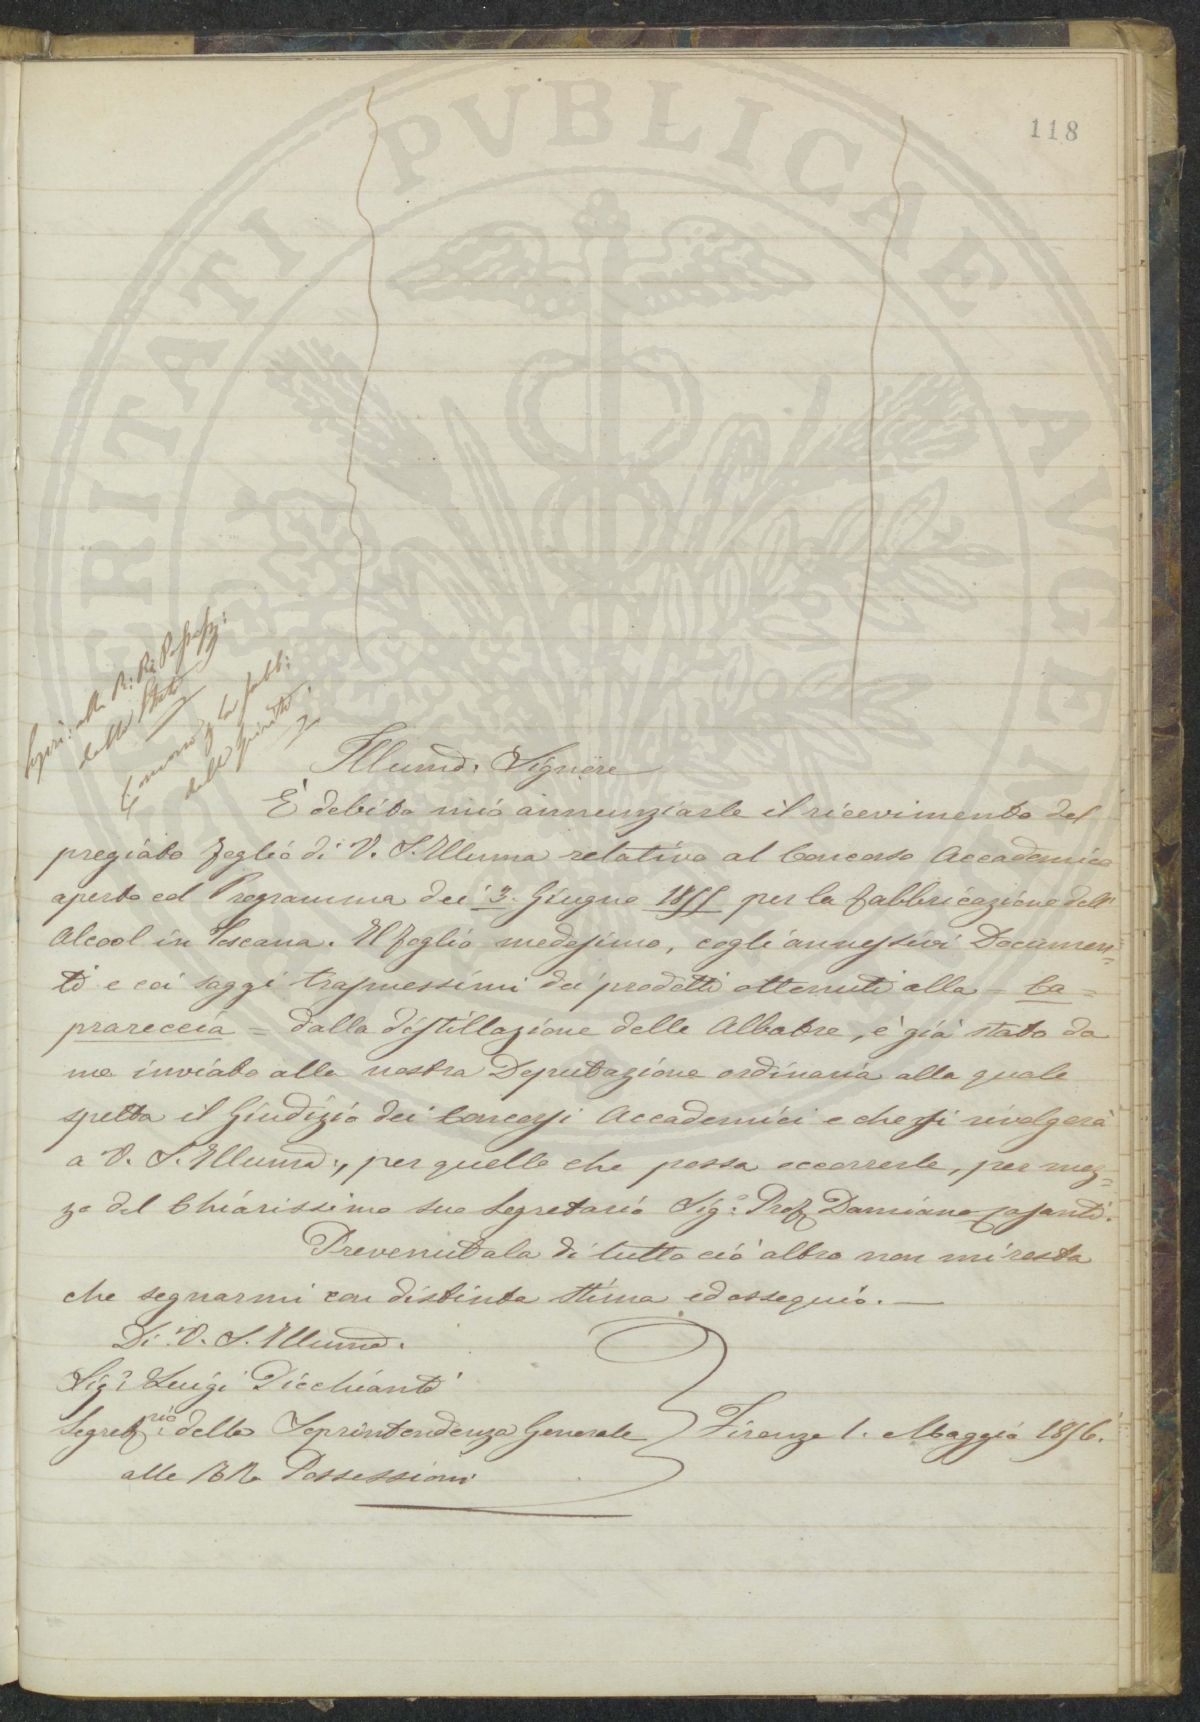 118
PROSPERITATI PVBLICAE AVGENDAE
Sopri: alle R: R: Possess:
dello Stato
Concorso p la fabb:
dello spirito
Illumo. Signore
È debito mio annunziarle il ricevimento del
pregiato foglio di V. S. Illuma relativo al Concorso Accademico
aperto col Programma dei 3. Giugno 1855 per la fabbricazione dell'
Alcool in Toscana. Il foglio medesimo, cogli annessivi Documen=
ti e coi saggi trasmessimi dei prodotti ottenuti alla = Ca=
prareccia = dalla distillazione delle Albatre, è già stato da
me inviato alla nostra Deputazione ordinaria alla quale
spetta il Giudizio dei Concorsi Accademici e che si rivolgerà
a V. S. Illuma., per quello che possa occorrerle, per mez=
zo del Chiarissimo suo Segretario Sigr. Prof Damiano Casanti.
Prevenutala di tutto ciò altro non mi resta
che segnarmi con distinta stima ed ossequio. —
Di V. S. Illuma.
Sigr. Luigi Picchianti
Segretrio. della Soprintendenza Generale
alle RR. Possessioni
Firenze 1. Maggio 1856.